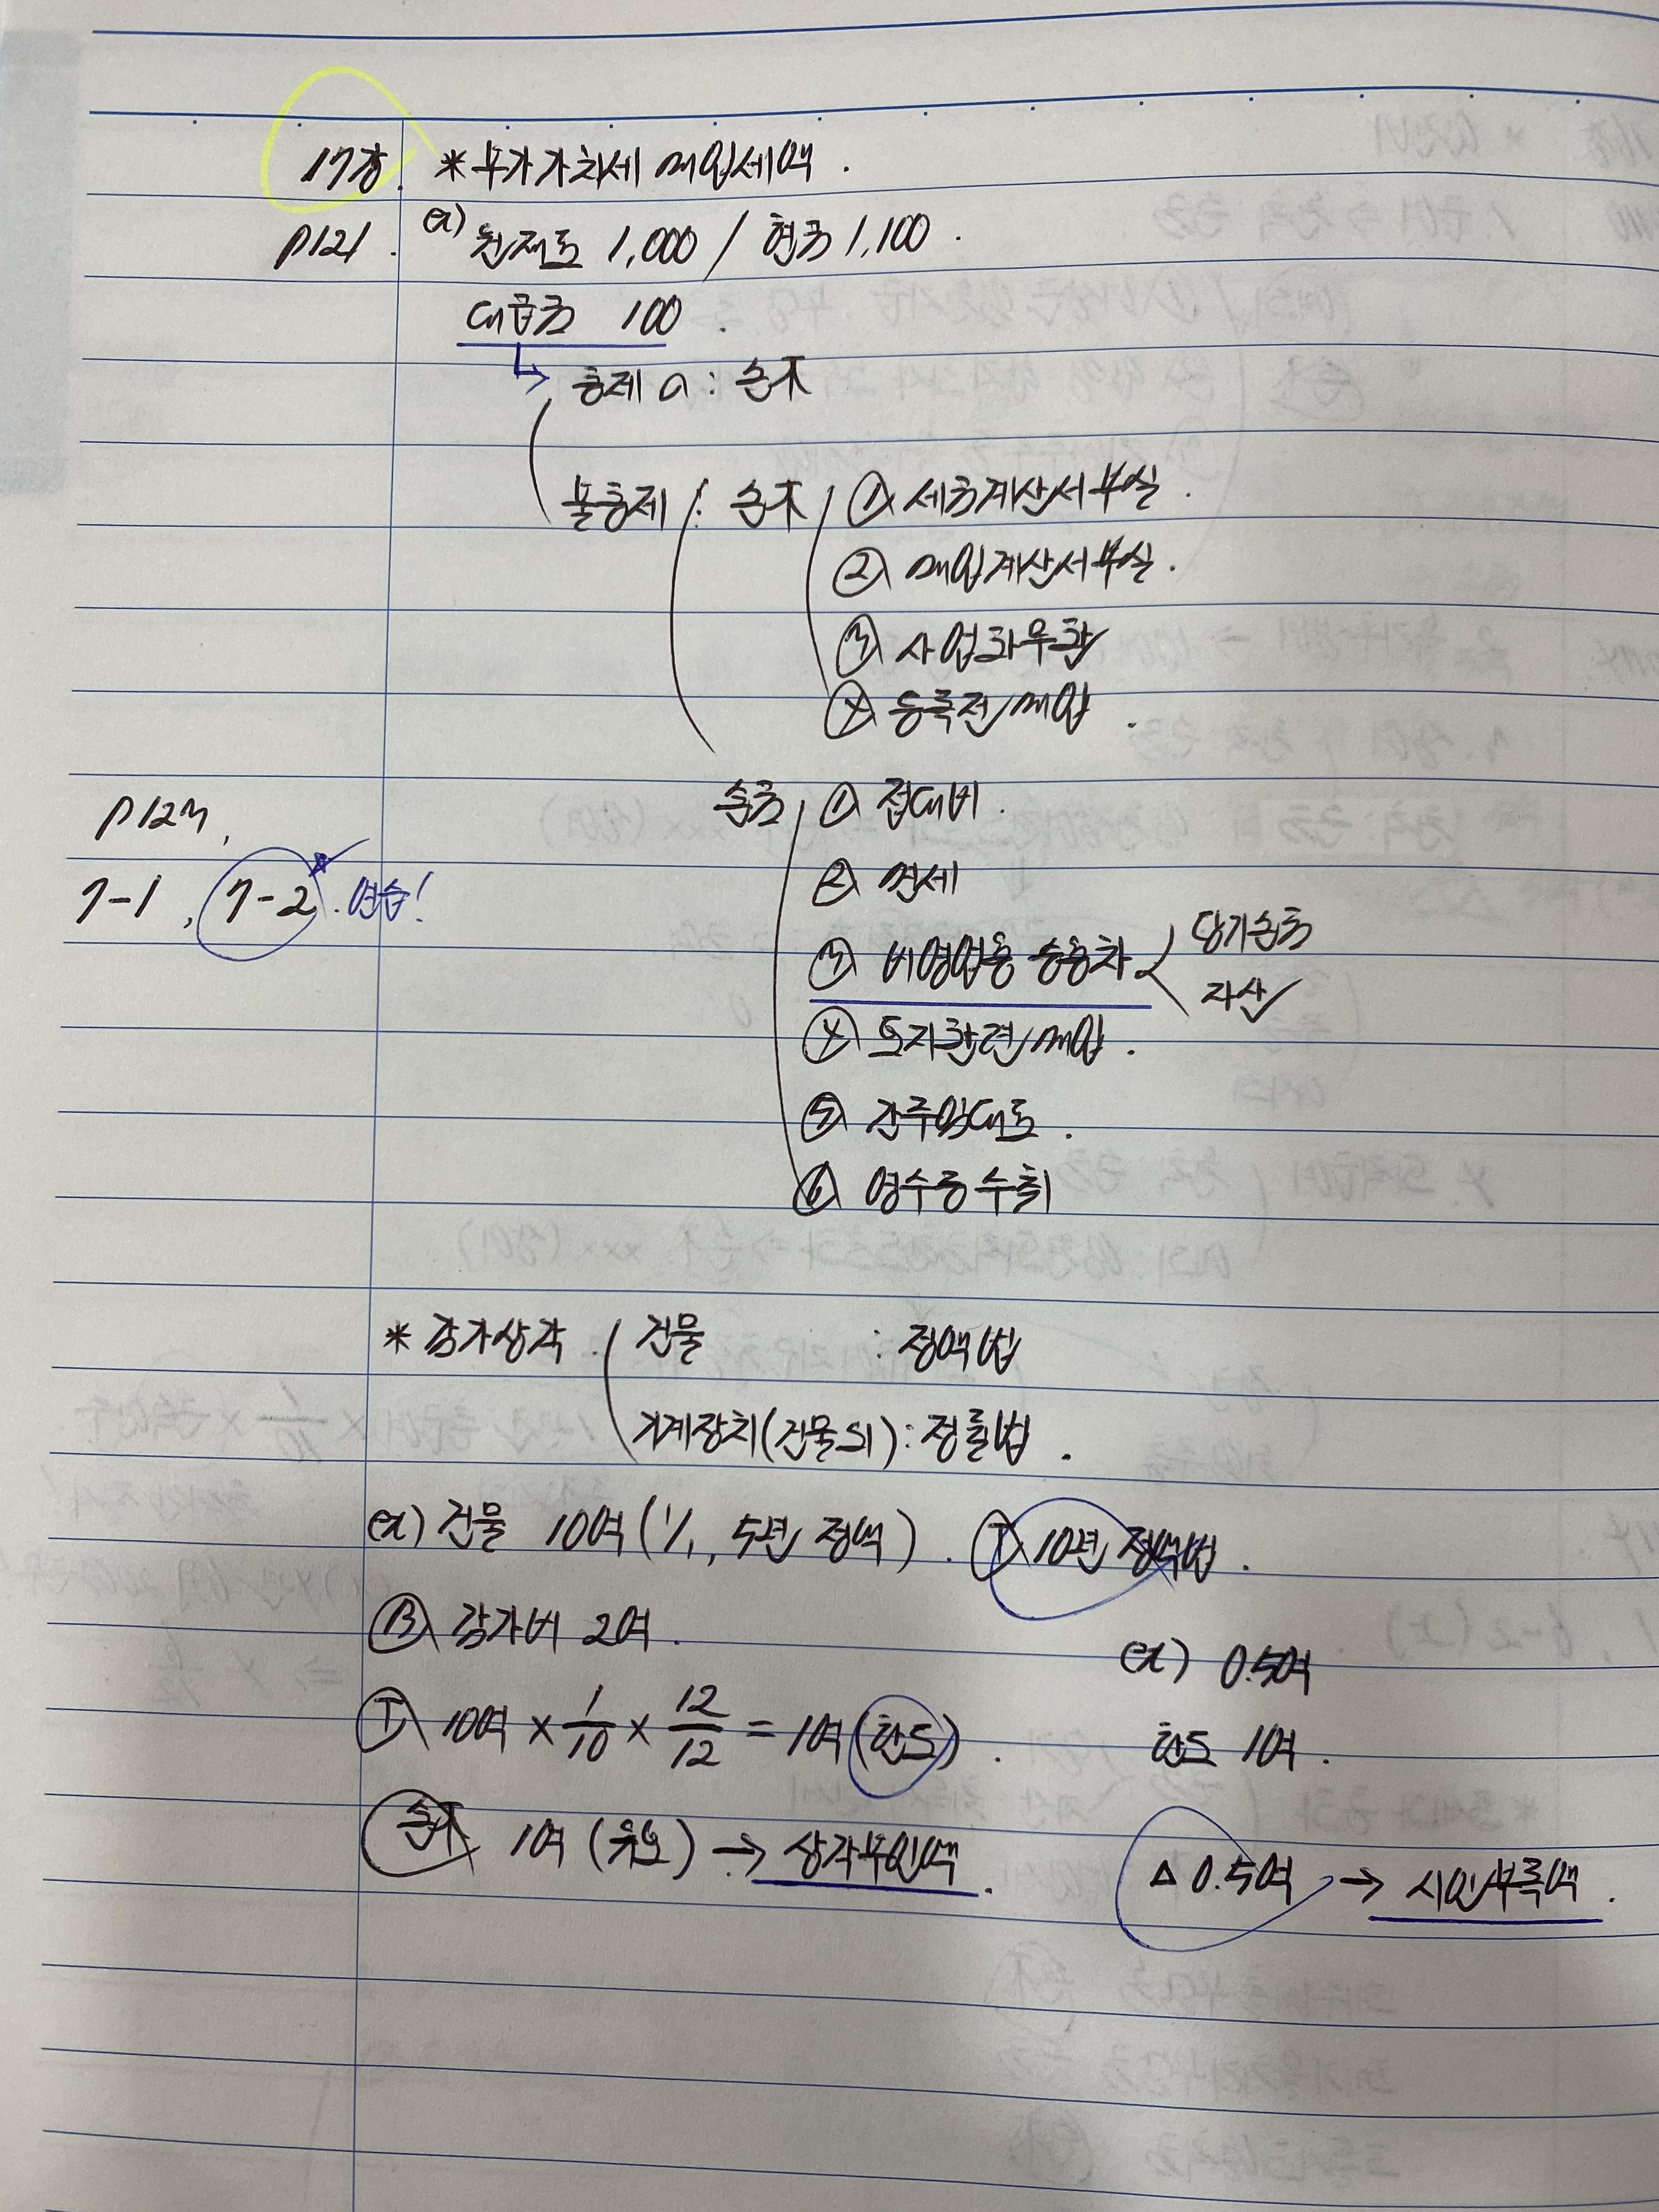 17강. * 부가가치세 매입세액.
P121. ex) 원재료 1,000 / 현금 1,100.
대급금 100.
↳ 공제 O : 손不
불공제 : 손不 ① 세금계산서부실.
② 매입계산서부실.
③ 사업과무관
④ 등록전매입.
손금 ① 접대비.
P123.
② 면세
7-1, 7-2. 연습!
③ 비영업용 승용차 < 당기손금
자산
④ 토지관련매입.
⑤ 간주임대료.
⑥ 영수증수취
* 감가상각. 건물 : 정액법
기계장치(건물외) : 정률법.
ex) 건물 10억 (1/1, 5년 정액). Ⓣ 10년 정액법.
Ⓑ 감가비 2억.
ex) 0.5억
Ⓣ 10억 × 1/10 × 12/12 = 1억 (한도).
한도 1억.
손不 1억 (유보) → 상각부인액.
△ 0.5억 → 시인부족액.